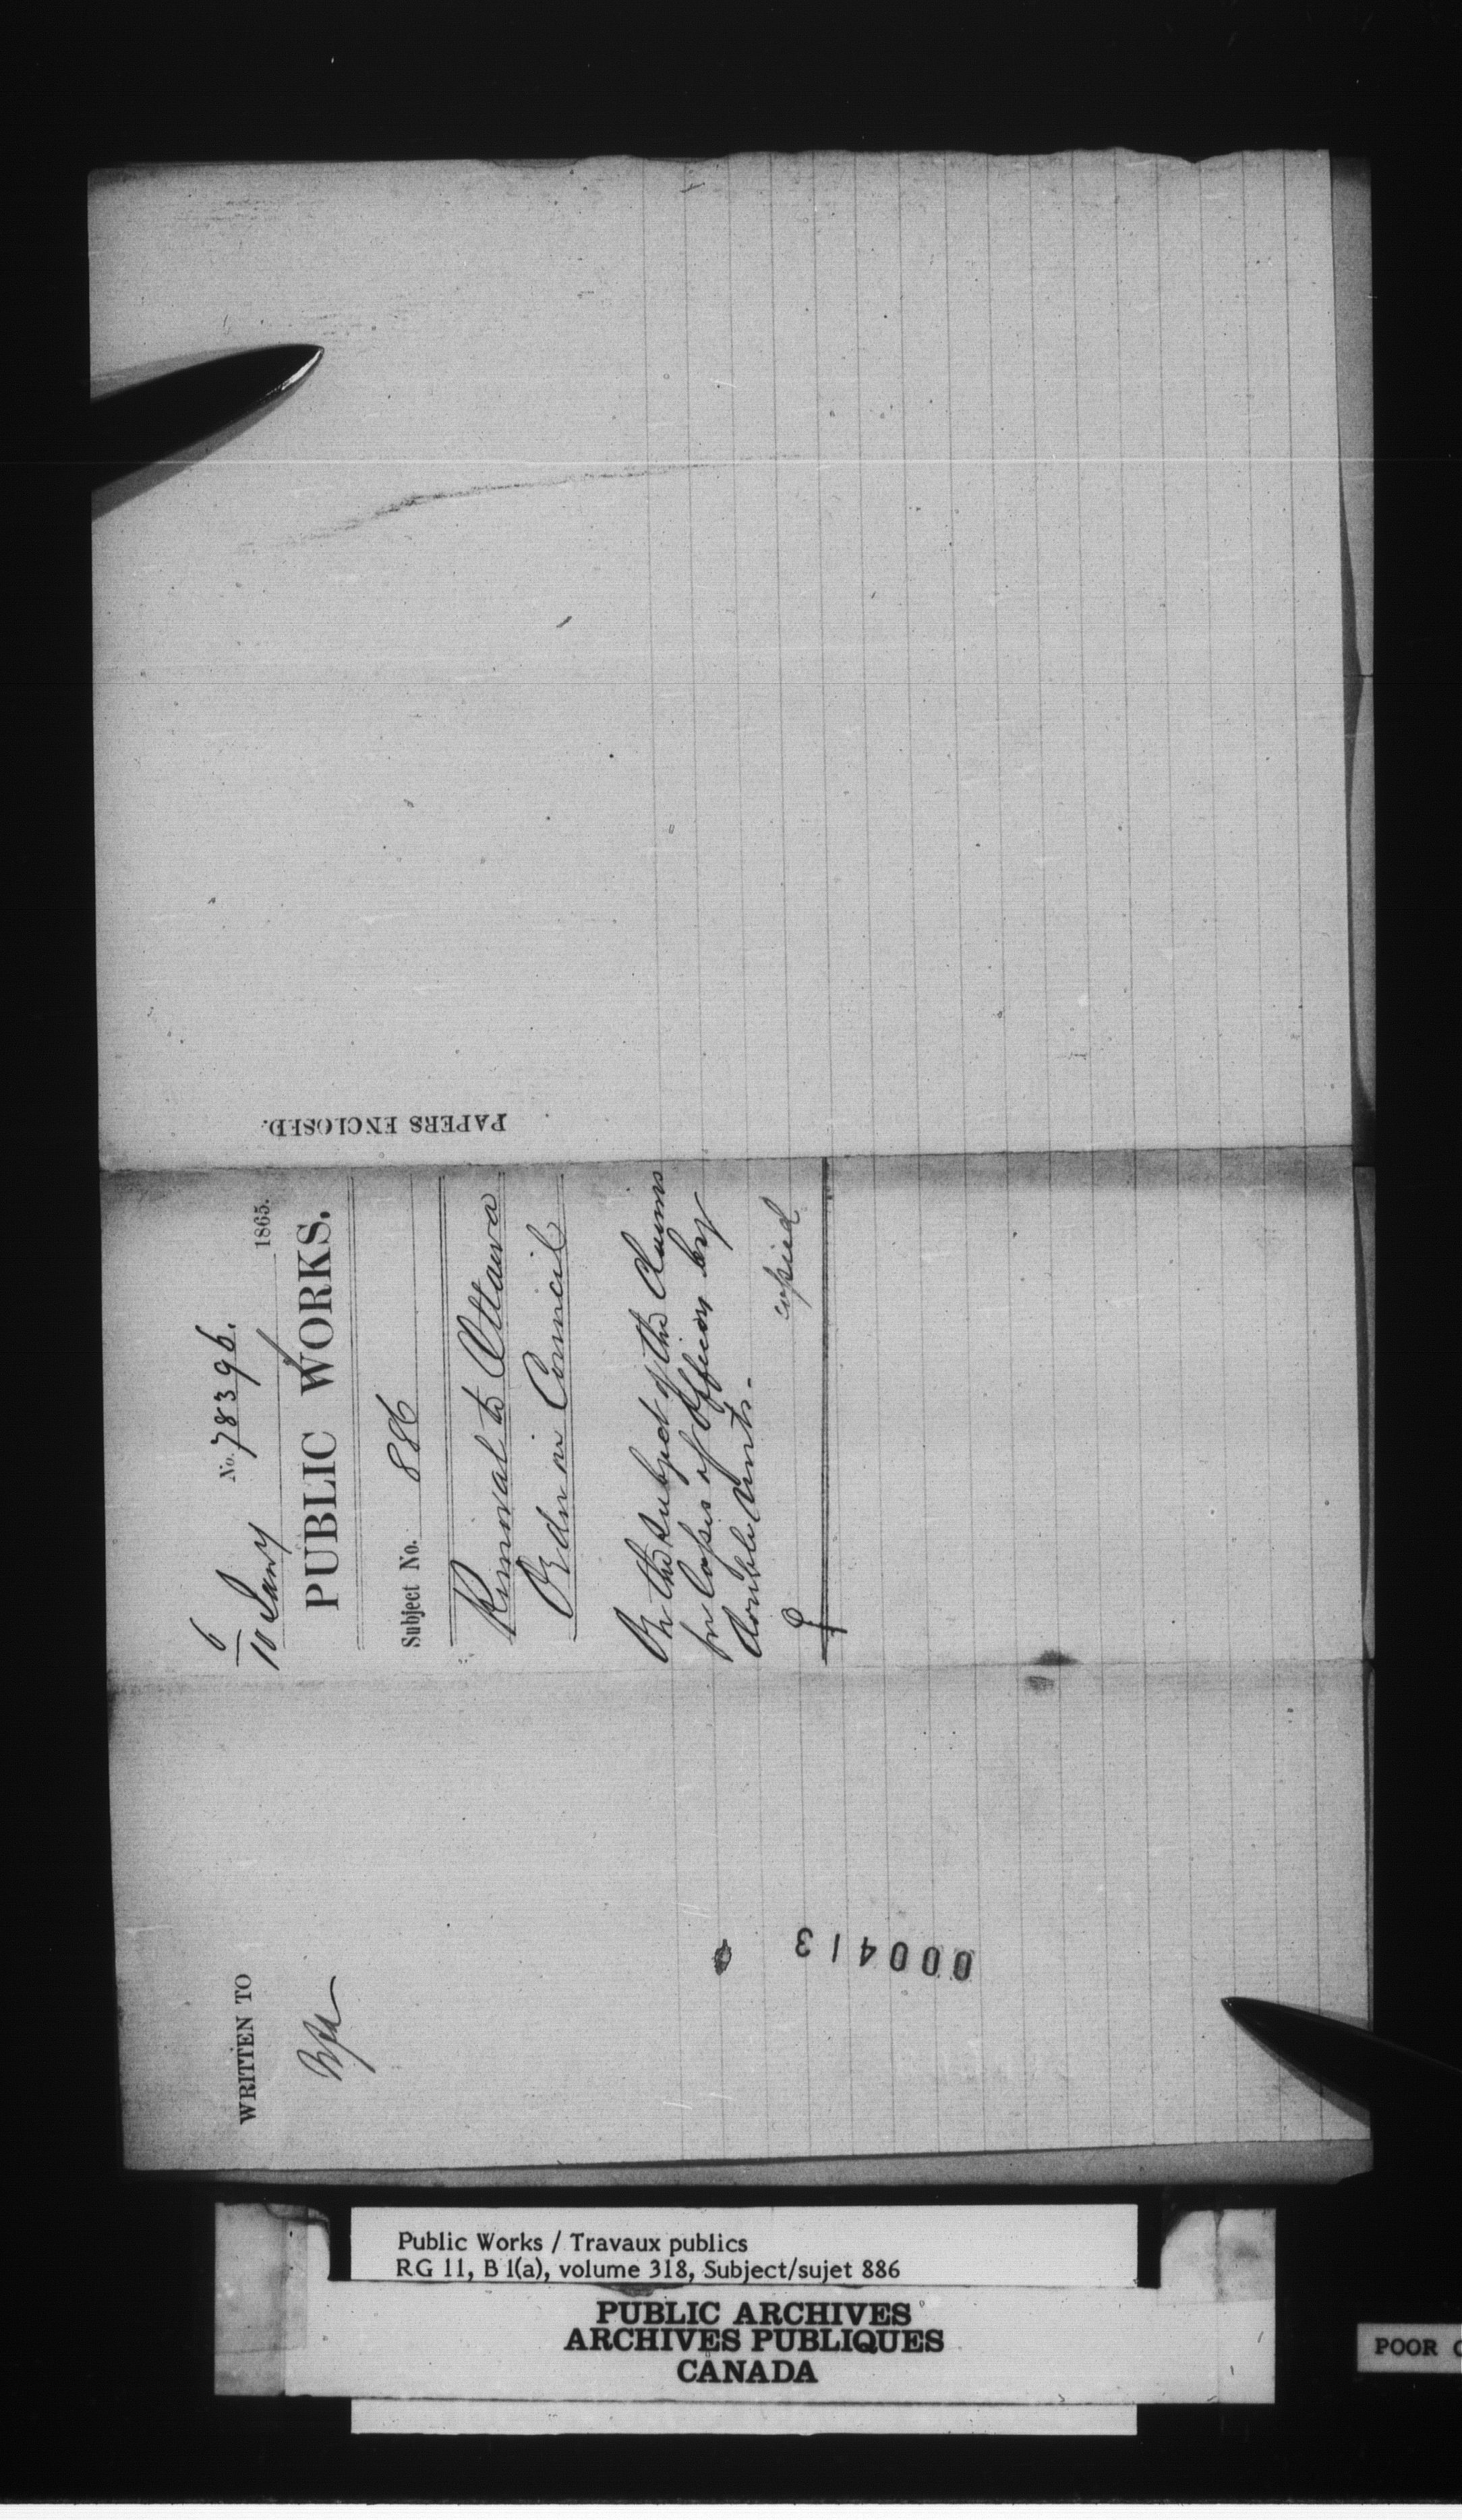 PAPERS ENCLOSED.
6
10 Jany
No. 78396.
1865.
PUBLIC WORKS.
Subject No. 886
Removal to Ottawa
Order in Council
On the subject of the Claims
for losses of Officers by
double rents.
copied
WRITTEN TO
000413
Public Works / Travaux publics
RG 11, B 1(a), volume 318, Subject/sujet 886
PUBLIC ARCHIVES
ARCHIVES PUBLIQUES
CANADA
POOR